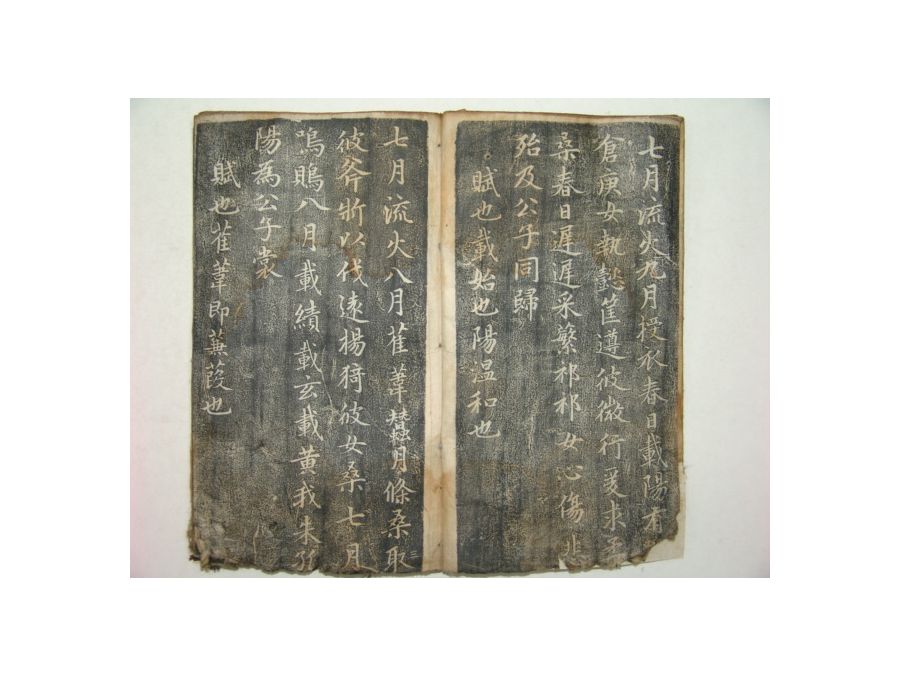 七月流火九月授衣春日載陽有
倉庚女執懿筐遵彼微行爰求
桑春日遲遲采蘩祁祁女心傷
殆及公子同歸
賦也載始也陽溫和也
七月流火八月萑葦蠶月條桑取
彼斧斨以伐遠揚猗彼女桑七月
鳴鵙八月載績載玄載黃我朱孔
陽為公子裳
賦也萑葦即蒹葭也